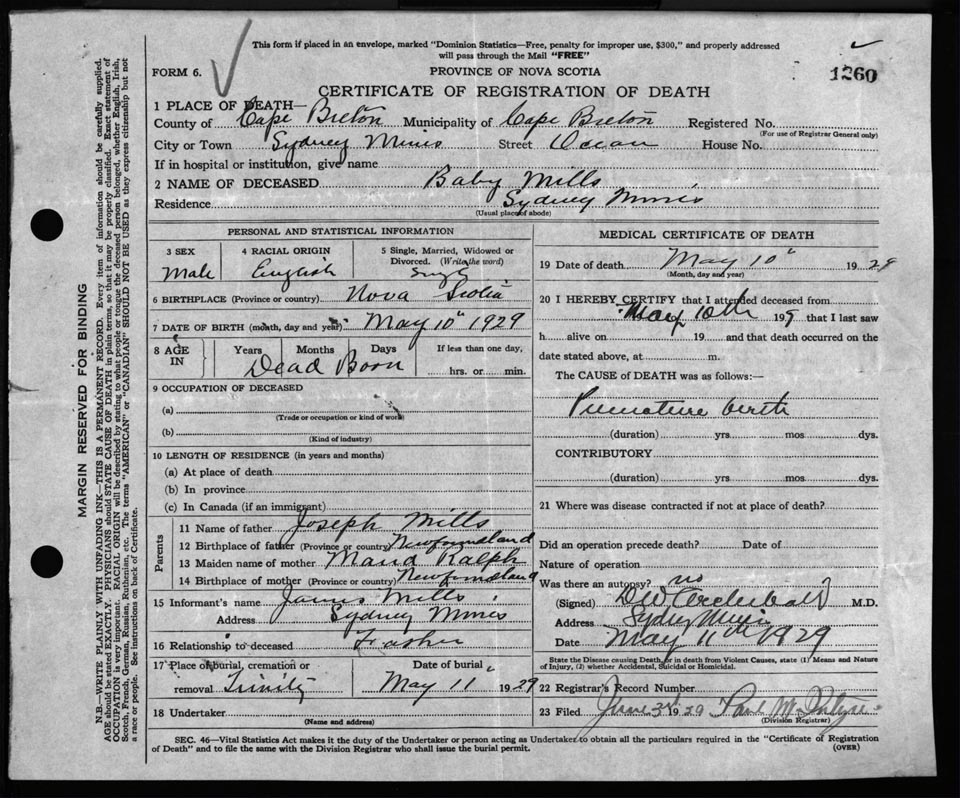 This form if placed in an envelope, marked "Dominion Statistics—Free, penalty for improper use, $300," and properly addressed
will pass through the Mail "FREE"
FORM 6.
PROVINCE OF NOVA SCOTIA
1260
CERTIFICATE OF REGISTRATION OF DEATH
1 PLACE OF DEATH—
County of Cape Breton Municipality of Cape Breton Registered No.
(For use of Registrar General only)
City or Town Sydney Mines Street Ocean House No.
If in hospital or institution, give name
2 NAME OF DECEASED Baby Mills
Residence Sydney Mines
(Usual place of abode)
PERSONAL AND STATISTICAL INFORMATION
3 SEX 4 RACIAL ORIGIN 5 Single, Married, Widowed or
Divorced. (Write the word)
Male English Single
6 BIRTHPLACE (Province or country) Nova Scotia
7 DATE OF BIRTH (month, day and year) May 10" 1929
8 AGE IN Years Months Days If less than one day,
Dead Born hrs. or min.
9 OCCUPATION OF DECEASED
(a)
(Trade or occupation or kind of work)
(b)
(Kind of industry)
10 LENGTH OF RESIDENCE (in years and months)
(a) At place of death
(b) In province
(c) In Canada (if an immigrant)
Parents
11 Name of father Joseph Mills
12 Birthplace of father (Province or country) Newfoundland
13 Maiden name of mother Maud Ralph
14 Birthplace of mother (Province or country) Newfoundland
15 Informant's name James Mills
Address Sydney Mines
16 Relationship to deceased Father
17 Place of burial, cremation or Date of burial
removal Trinity May 11" 1929
18 Undertaker
(Name and address)
MEDICAL CERTIFICATE OF DEATH
19 Date of death May 10" 1929
(Month, day and year)
20 I HEREBY CERTIFY that I attended deceased from
May 10th 199 that I last saw
h alive on 19 and that death occurred on the
date stated above, at m.
The CAUSE of DEATH was as follows:—
Premature birth
(duration) yrs mos dys.
CONTRIBUTORY
(duration) yrs mos dys.
21 Where was disease contracted if not at place of death?
Did an operation precede death? Date of
Nature of operation
Was there an autopsy? no
(Signed) DW Archibald M.D.
Address Sydney Mines
Date May 11th 1929
State the Disease causing Death, or in death from Violent Causes, state (1) Means and Nature
of Injury, (2) whether Accidental, Suicidal or Homicidal.
22 Registrar's Record Number
23 Filed June 3rd 1929 Paul
(Division Registrar)
SEC. 46—Vital Statistics Act makes it the duty of the Undertaker or person acting as Undertaker to obtain all the particulars required in the "Certificate of Registration
of Death" and to file the same with the Division Registrar who shall issue the burial permit.
(OVER)
MARGIN RESERVED FOR BINDING
N.B.—WRITE PLAINLY WITH UNFADING INK—THIS IS A PERMANENT RECORD. Every item of information should be carefully supplied.
AGE should be stated EXACTLY. PHYSICIANS should STATE CAUSE OF DEATH in plain terms, so that it may be properly classified. Exact statement of
OCCUPATION is very important. RACIAL ORIGIN will be described by stating to what people or tongue the deceased person belonged, whether English, Irish,
Scotch, French, German, Russian, Ruthenian, etc. The terms "AMERICAN" or "CANADIAN" SHOULD NOT BE USED as they express citizenship but not
a race or people. See instructions on back of Certificate.